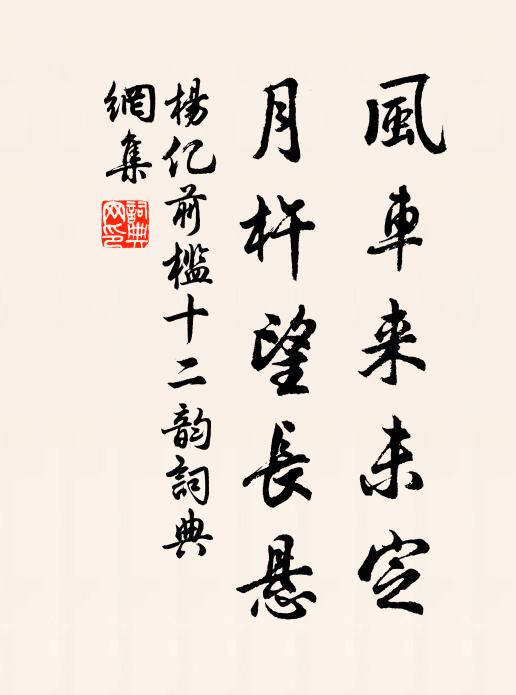 風車来未定
月杵望長悬
楊亿前檻十二韵詞典
網集
詞典
网印